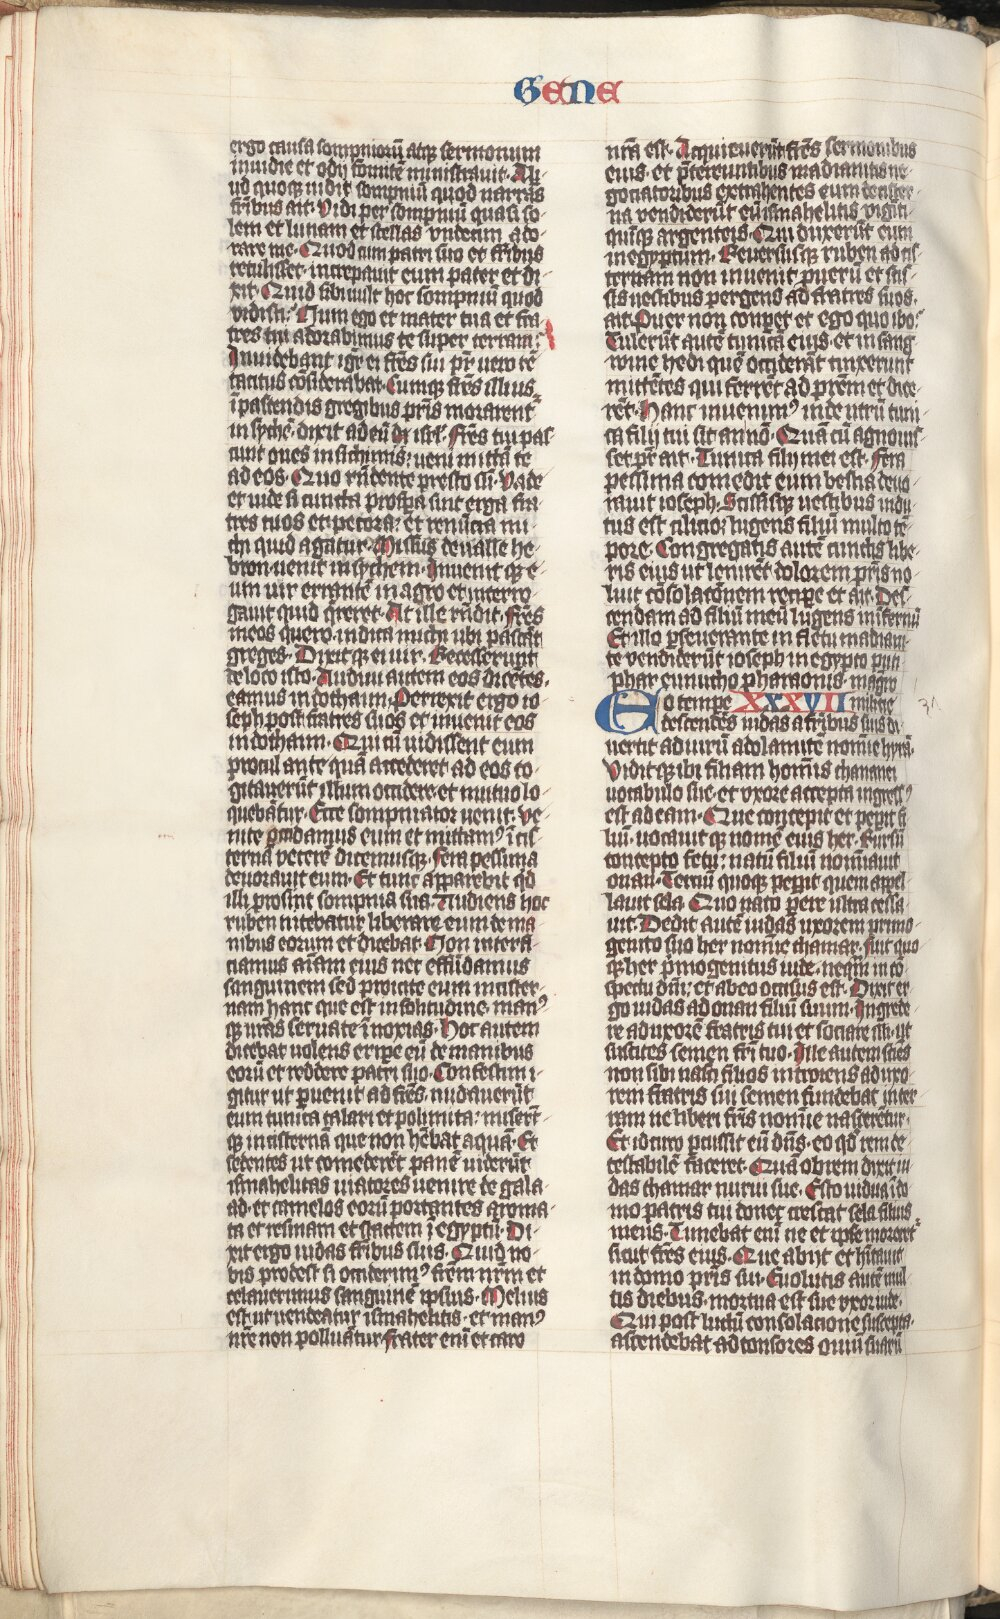 GENE
ergo causa sompniorū atq; sermonum
inuidie et odij fomitē ministrauit. Ali
ud quoq; uidit sompniū quod narrās
fr̄ibus ait. Vidi per sompniū quasi so
lem et lunam et stellas vndecim ado
rare me. Quod cum patri suo et fr̄ibus
retulisset. increpauit eum pater et di
xit. Quid sibi uult hoc sompniū quod
vidisti. Num ego et mater tua et fra
tres tui adorabimus te super terram.
Inuidebant igr̄ ei fr̄es sui pr̄ uero rē
tacitus cōsiderabat. Cumq; fr̄es illius
ī pastendis gregibus pr̄is morarent̄
in sychē. dixit ad eū isrl̄. Fr̄es tui pas
cunt oues in sichimis: veni mittā te
ad eos. Quo rn̄dente presto sū. Vade
et uide si cuncta prospa sint erga fra
tres tuos et pecora: et renūcia mi
chi quid agatur. Missus de ualle he
bron uenit in sychem. Inuenit q; e
um uir errantē in agro et interro
gauit quid q̄reret. At ille rn̄dit. Fr̄es
meos quero. indica michi ubi pascāt
greges. Dixit q; ei uir. Recesserunt
de loco isto. Audiui autem eos dicētes.
eamus in dothaim. Perrexit ergo io
seph post fratres suos et inuenit eos
in dothaim. Qui cū uidissent eum
procul ante quā accederet ad eos co
gitauerūt illum occidere. et mutuo lo
quebātur. Ecce sompniator uenit. Ve
nite occidamus eum et mittamꝰ ī cis
ternā veterē dicemusq;. Fera pessima
deuorauit eum. Et tunc apparebit qd
illi prosint sompnia sua. Audiens hoc
ruben nitebatur liberare eum de ma
nibus eorum et dicebat. Non interfi
ciamus aīam eius nec effūdamus
sanguinem sed proicite eum in cister
nam hanc que est in solitudine. manꝰ
q; uras seruate ī noxias. Hoc autem
dicebat volens eripe eū de manibus
eorū et reddere patri suo. Confestim i
gitur ut p̄uenit ad fr̄es. nudauerūt
eum tunica talari et polimita: miserūt
q; in cisternā que non hēbat aquā. Et
sedentes ut comederēt panē viderūt
ismahelitas viatores uenire de gala
ad. et camelos eorū portantes aroma
ta et resinam et stactem ī egyptū. Di
xit ergo iudas fr̄ibus suis. Quid no
bis prodest si occiderimꝰ fr̄em nr̄m et
celauerimus sanguinē ipsius. Melius
est ut uendeatur ismahelitis. et manꝰ
nr̄e non polluātur. frater enī et caro
nr̄a est. Acquieuerūt fr̄es sermonibus
eius. et p̄tereuntibus madianitis ne
gotiatoribus extrahentes eum de cister
na vendiderūt eū ismahelitis viginti
quīq; argenteis. Qui duxerūt eum
in egyptum. Reuersusq; ruben ad cis
ternam non inuenit puerū et scis
sis uestibus pergens ad fratres suos.
ait. Puer non conparet et ego quo ibo.
Tulerūt autē tunicā eius. et in sang
wine hedi quē occiderāt tinxerunt
mittētes qui ferrēt ad pr̄em et dice
rēt. Hanc inuenimꝰ uide utrū tuni
ca filij tui sit an nō. Quā cū agnouis
set pr̄ ait. Tunica filij mei est. fera
pessima comedit eum bestia deuo
rauit ioseph. Scissisq; uestibus indu
tus est cilicio: lugens filiū multo tē
pore. Congregatis autē cunctis libe
ris eius ut lenirēt dolorem pr̄is no
luit cōsolacōnem recipe et ait. Des
cendam ad filiū meū lugens in ifernū
Et illo p̄seuerante in fletu madiani
te vendiderūt ioseph in egypto puti
phar eunucho pharaonis. magro
Eo tempe XXXVII milicie
descendēs iudas a fr̄ibus suis di
uertit ad uirū adolamitē nomīe hyrā.
Vidit q; ibi filiam homīs chananei
uocabulo sue. et uxore accepta ingressꝰ
est ad eam. Que concepit et pepit fi
lū. uocauit q; nomē eius her. Rursū
concepto fetu: natū filiū nomīauit
onan. Terciū quoq; pepit quem appel
lauit sela. Quo nato pere ultra cessa
uit. Dedit autē iudas uxorem primo
genito suo her nomīe thamar. fuit quo
q; her p̄mogenitus iude. neqm̄ in cō
spectu dn̄i; et ab eo occisus est. Dixit er
go iudas ad onan filiū suum. Ingrede
re ad uxorē fratris tui et sociare illi. ut
suscites semen fr̄i tuo. Ille autem sciēs
non sibi nasci filios introiens ad uxo
rem fratris sui semen fundebat in ter
ram ne liberi fr̄is nomīe nascerētur.
Et idcirco p̄cussit eū dn̄s. eo qd rem de
testabilē faceret. Quā obrem dixit iu
das thamar nurui sue. Esto uidua ī do
mo patris tui donec crescat sela filius
meus. Timebat enī ne et ipse moreret̄
sicut fr̄es eius. Que abijt et hītauit
in domo pr̄is sui. Euolutis autē mul
tis diebus. mortua est sue vxor iude.
Qui post luctū consolacione suscepta.
ascendebat ad tonsores ouiū suarū